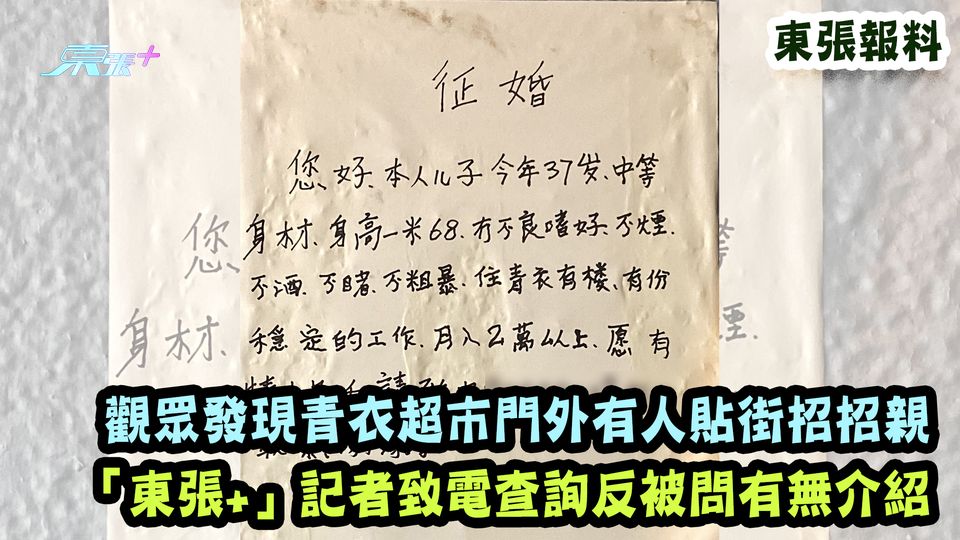 東張+
東張報料
征婚
您好、本人儿子今年37岁、中等
身材、身高一米68、冇不良嗜好、不煙、
不酒、不赌、不粗暴、住青衣有楼、有份
穩定的工作、月入2萬以上、愿有
您
等
身材、
煙、
觀眾發現青衣超市門外有人貼街招招親
「東張+」記者致電查詢反被問有無介紹